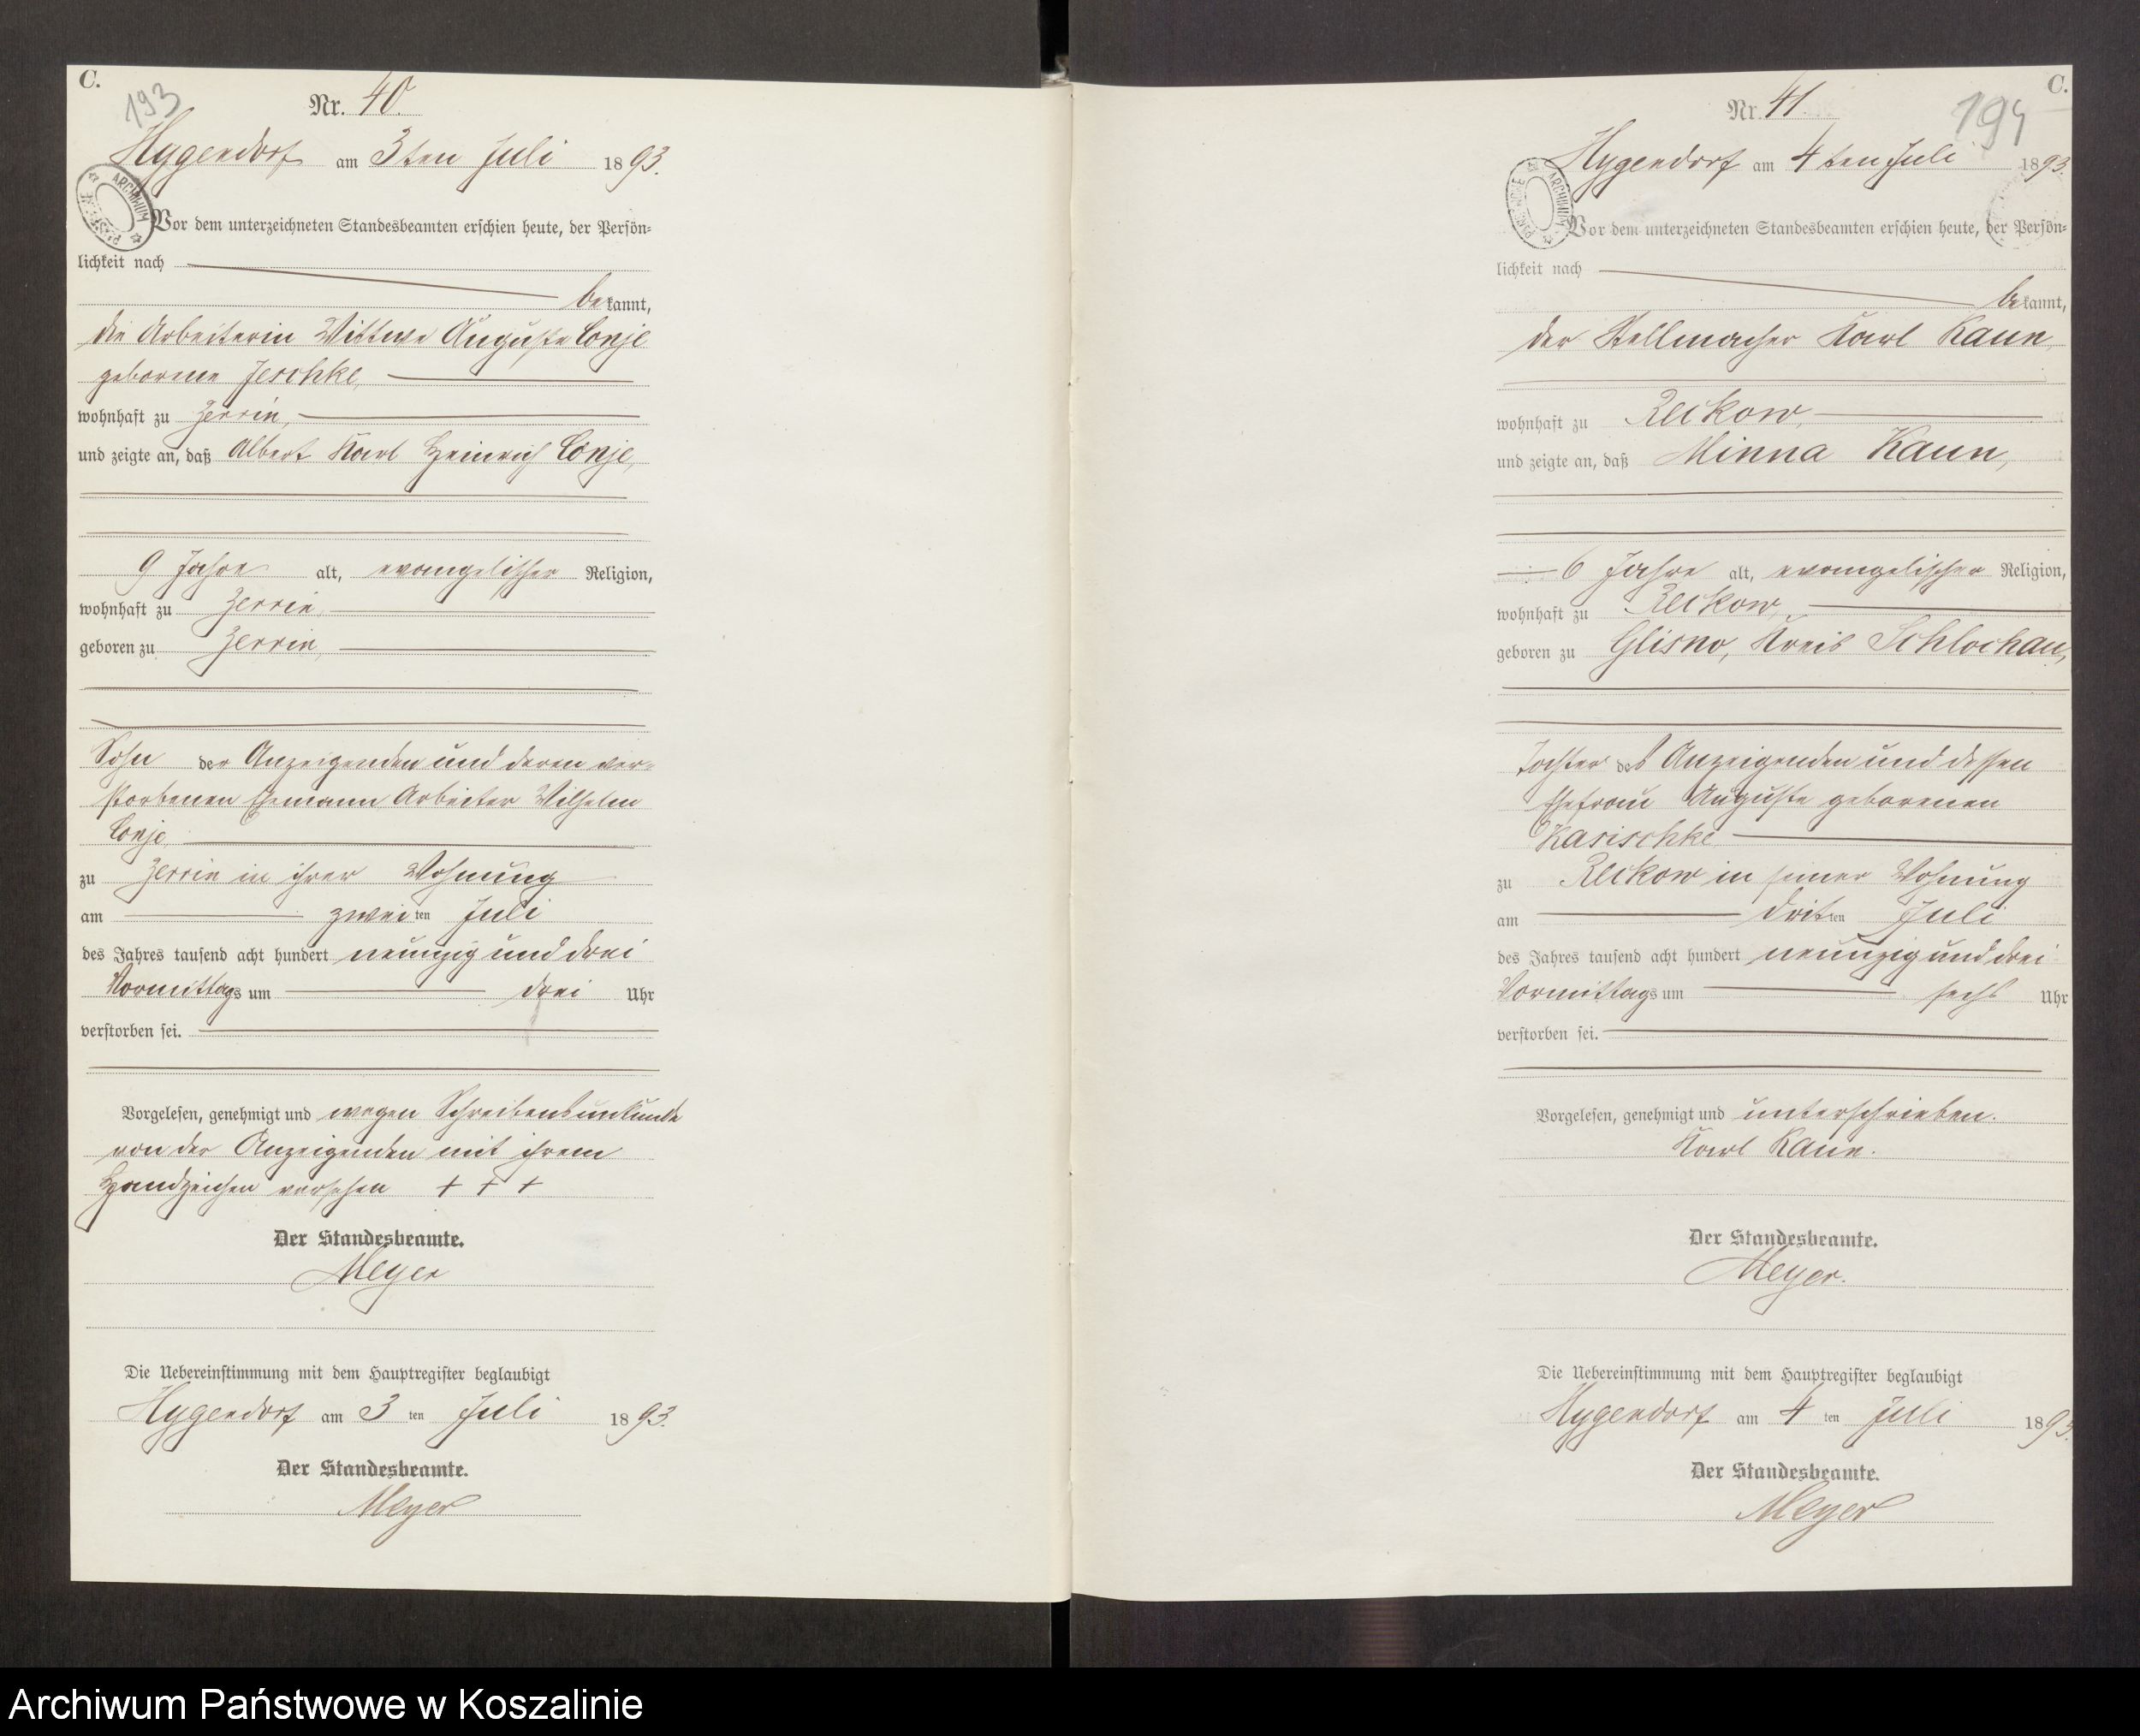 C.
193
Nr. 40.
Hygendorf am 3ten Juli 1893.
ARCHIWUM PAŃSTWOWE
Vor dem unterzeichneten Standesbeamten erschien heute, der Persön-
lichkeit nach
bekannt,
die Arbeiterin Wittwe Auguste Conje
geborene Jeschke,
wohnhaft zu Zerrin,
und zeigte an, daß Albert Karl Heinrich Conje,
9 Jahre alt, evangelischer Religion,
wohnhaft zu Zerrin,
geboren zu Zerrin,
Sohn der Anzeigenden und deren ver-
storbenen Ehemann Arbeiter Wilhelm
Conje,
zu Zerrin in ihrer Wohnung
am zweiten Juli
des Jahres tausend acht hundert neunzig und drei
Vormittags um drei Uhr
verstorben sei.
Vorgelesen, genehmigt und wegen Schreibensunkunde
von der Anzeigenden mit ihrem
Handzeichen versehen + + +
Der Standesbeamte.
Meyer
Die Uebereinstimmung mit dem Hauptregister beglaubigt
Hygendorf am 3 ten Juli 1893.
Der Standesbeamte.
Meyer
C.
194
Nr. 41.
Hygendorf am 4ten Juli 1893.
ARCHIWUM PAŃSTWOWE
Vor dem unterzeichneten Standesbeamten erschien heute, der Persön-
lichkeit nach
bekannt,
der Stellmacher Karl Kaun,
wohnhaft zu Reckow,
und zeigte an, daß Minna Kaun,
6 Jahre alt, evangelischer Religion,
wohnhaft zu Reckow,
geboren zu Glisno, Kreis Schlochau,
Tochter des Anzeigenden und dessen
Ehefrau Auguste geborenen
Kasischke
zu Reckow in seiner Wohnung
am dritten Juli
des Jahres tausend acht hundert neunzig und drei
Vormittags um sechs Uhr
verstorben sei.
Vorgelesen, genehmigt und unterschrieben.
Karl Kaun.
Der Standesbeamte.
Meyer.
Die Uebereinstimmung mit dem Hauptregister beglaubigt
Hygendorf am 4 ten Juli 1893.
Der Standesbeamte.
Meyer
Archiwum Państwowe w Koszalinie